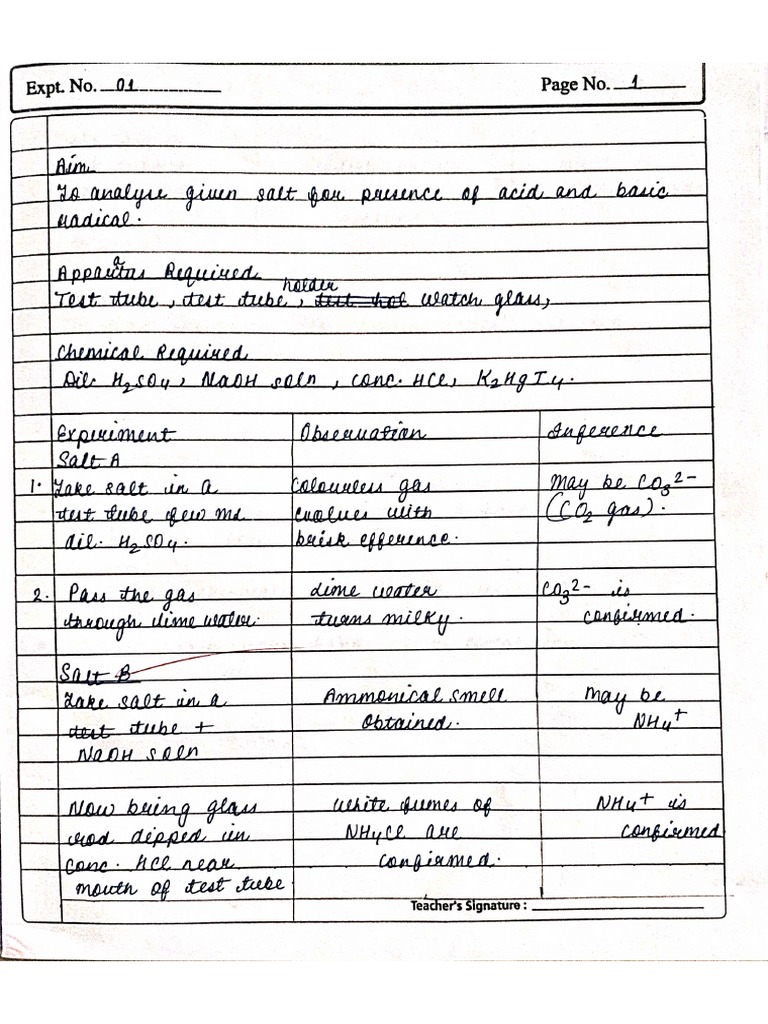 Expt. No. 01
Page No. 1
Aim
To analyse given salt for presence of acid and basic
radical.
Apparatas Required
holder
Test tube, test tube, test hol watch glass,
Chemical Required
Dil. H2SO4, NaOH soln, conc. HCl, K2HgI4.
Experiment Observation Inference
Salt A
1. Take salt in a colourless gas May be CO3^2-
test tube few ml evolves with (CO2 gas).
dil. H2SO4. brisk efference.
2. Pass the gas lime water CO3^2- is
through lime water. turns milky. confirmed.
Salt B
Take salt in a Ammonical smell May be
test tube + obtained. NH4+
NaOH soln
Now bring glass white fumes of NH4+ is
rod dipped in NH4Cl are confirmed
conc. HCl near confirmed.
mouth of test tube
Teacher's Signature :